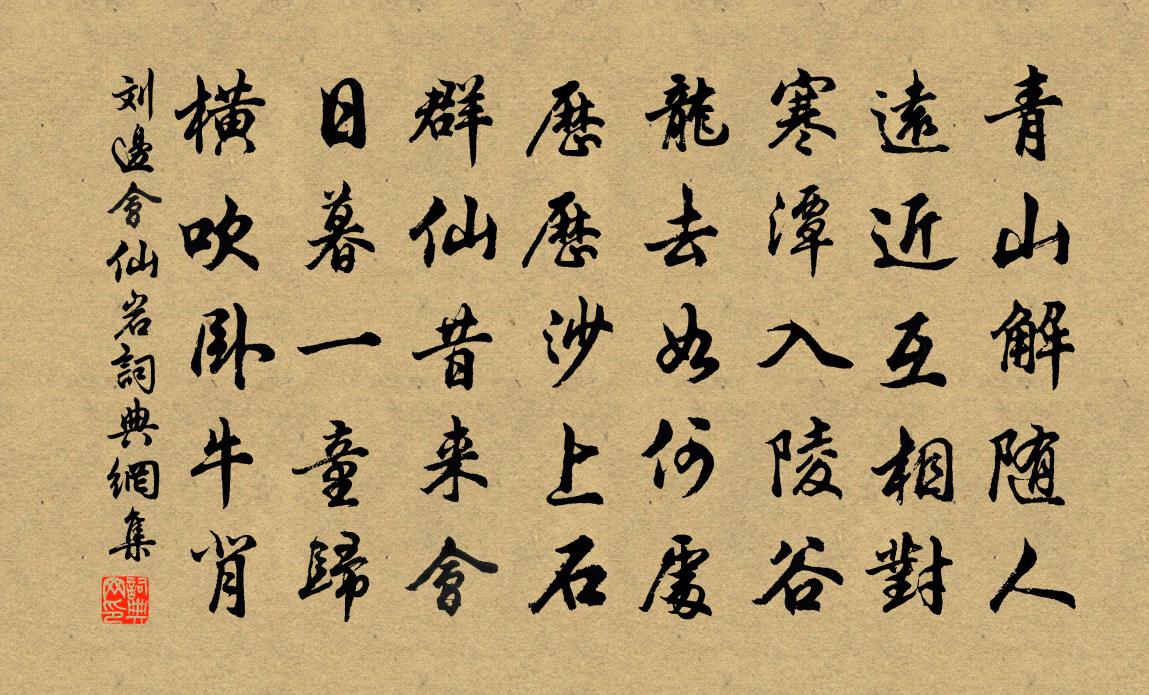 青山解随人
遠近互相對
寒潭入陵谷
龍去如何處
曆曆沙上石
群仙昔来會
日暮一童歸
横吹卧牛背
刘邊會仙岩詞典網集
詞典
网印